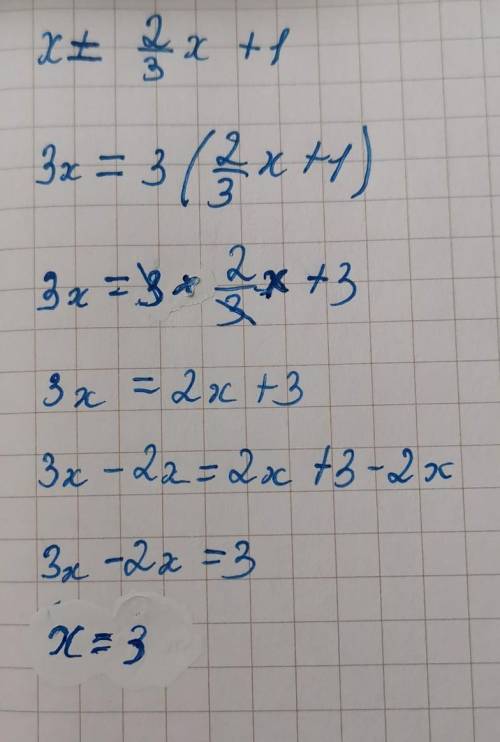 x = 2/3 x + 1
3x = 3 (2/3 x + 1)
3x = 3 · 2/3 x + 3
3x = 2x + 3
3x - 2x = 2x + 3 - 2x
3x - 2x = 3
x = 3